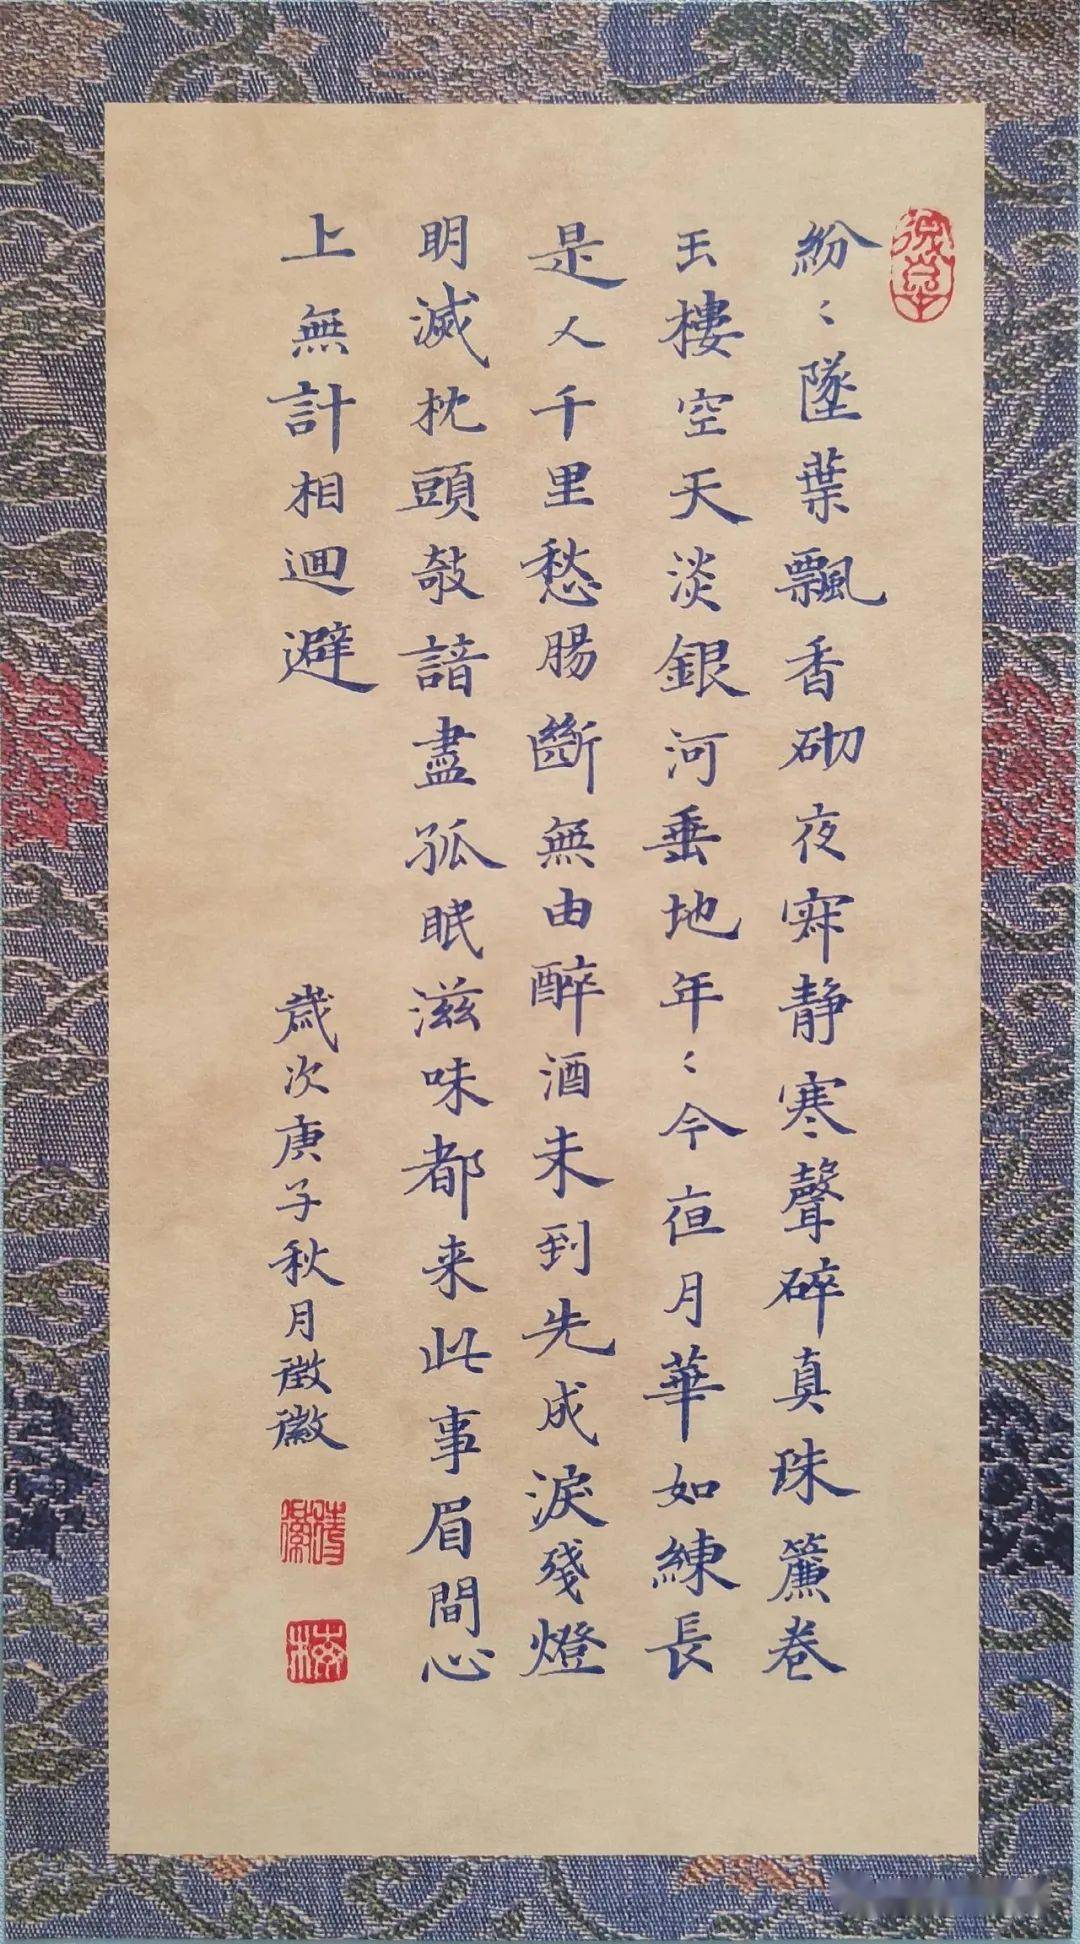 紛〻墜葉飄香砌夜㝛静寒聲碎真珠簾巻
玉樓空天淡銀河垂地年〻今夜月華如練長
是人千里愁腸斷無由醉酒未到先成淚殘燈
明滅枕頭敧諳盡孤眠滋味都来此事眉間心
上無計相迴避
歲次庚子秋月徵徽
梅